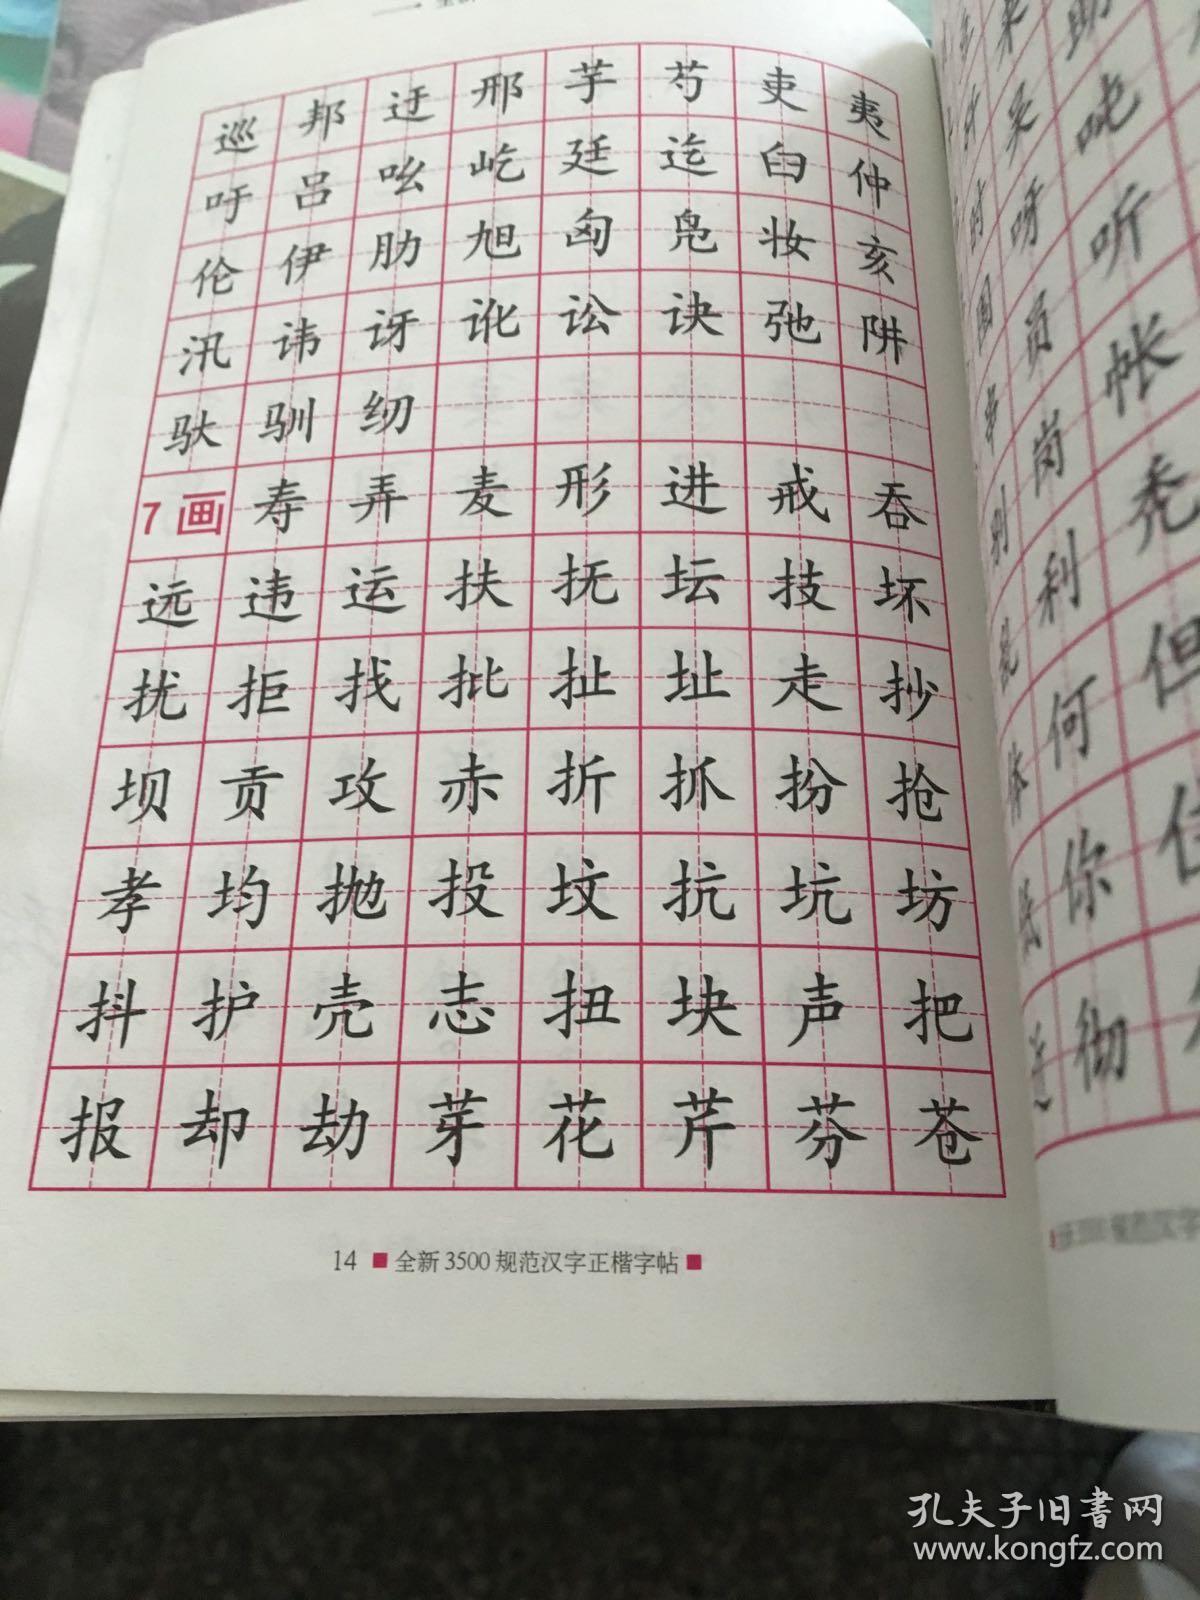 巡邦迂邢芋芍吏夷
吁吕吆屹廷迄臼仲
伦伊肋旭匈凫妆亥
汛讳讶讹讼诀弛阱
驮驯纫
7画寿弄麦形进戒吞
远违运扶抚坛技坏
扰拒找批扯址走抄
坝贡攻赤折抓扮抢
孝均抛投坟抗坑坊
抖护壳志扭块声把
报却劫芽花芹芬苍
14 ■ 全新3500规范汉字正楷字帖 ■
助
吴吨
时呀听
围员帐
岗秃
别利
何但
体
你
彻
孔夫子旧书网
www.kongfz.com